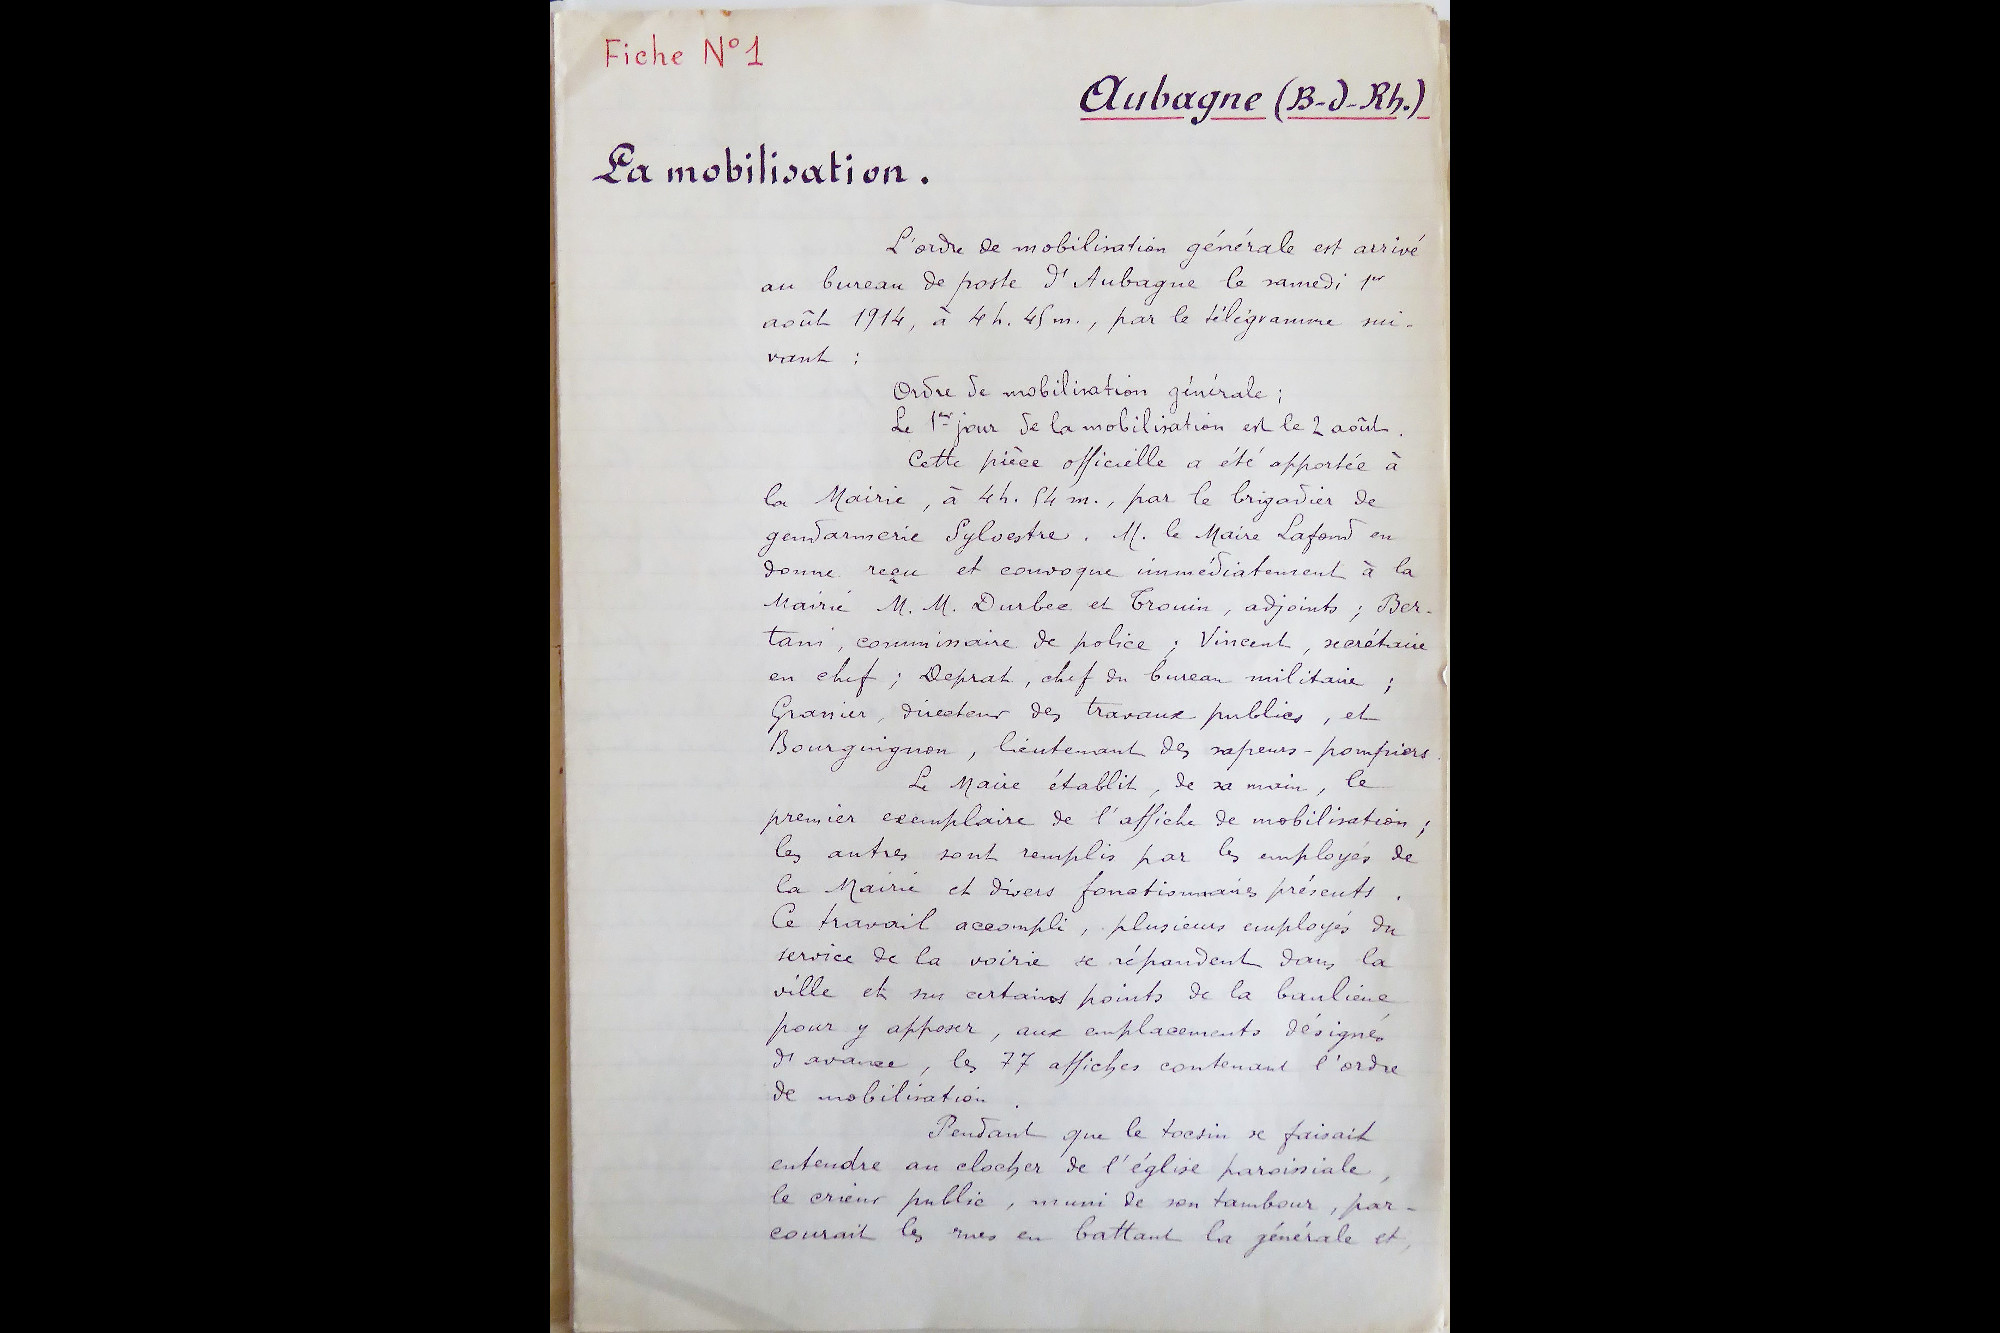 Fiche N°1
Aubagne (B-d-Rh.)
La mobilisation.
L'ordre de mobilisation générale est arrivé
au bureau de poste d'Aubagne le samedi 1er
août 1914, à 4h. 45m., par le télégramme sui-
vant :
Ordre de mobilisation générale ;
Le 1er jour de la mobilisation est le 2 août.
Cette pièce officielle a été apportée à
la Mairie, à 4h. 54m., par le brigadier de
gendarmerie Sylvestre. M. le Maire Lafond en
donne reçu et convoque immédiatement à la
Mairie M. M. Durbec et Trouin, adjoints ; Ber-
tani, commissaire de police ; Vincent, secrétaire
en chef ; Deprat, chef du bureau militaire ;
Granier, directeur des travaux publics, et
Bourguignon, lieutenant des sapeurs-pompiers.
Le Maire établit, de sa main, le
premier exemplaire de l'affiche de mobilisation ;
les autres sont remplis par les employés de
la Mairie et divers fonctionnaires présents.
Ce travail accompli, plusieurs employés du
service de la voirie se répandent dans la
ville et sur certains points de la banlieue
pour y apposer, aux emplacements désignés
d'avance, les 77 affiches contenant l'ordre
de mobilisation.
Pendant que le tocsin se faisait
entendre au clocher de l'église paroissiale,
le crieur public, muni de son tambour, par-
courait les rues en battant la générale et,